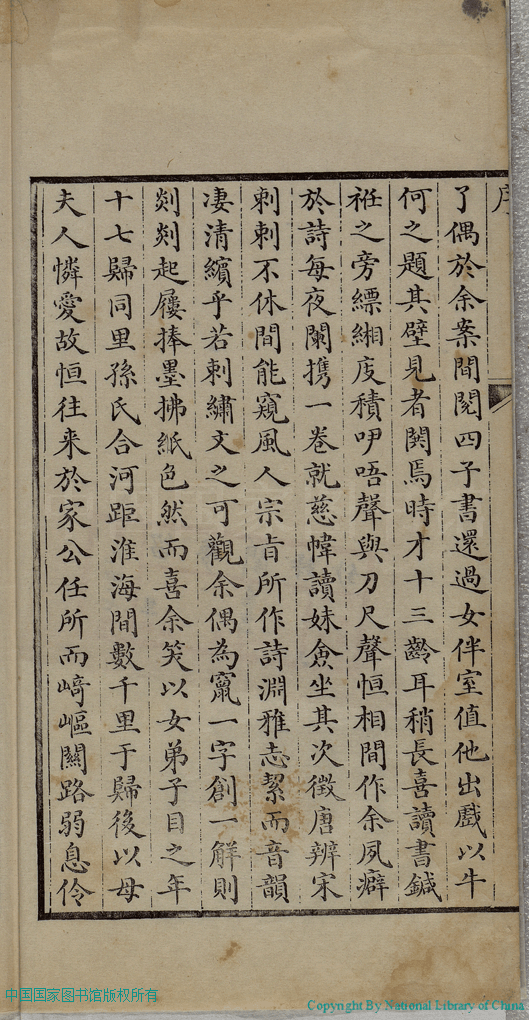 序
了偶於余案間閱四子書還過女伴室值他出戲以牛
何之題其壁見者閧焉時才十三齡耳稍長喜讀書鍼
袵之旁縹緗庋積吚唔聲與刀尺聲恒相間作余夙癖
於詩每夜闌攜一卷就慈幃讀妹僉坐其次徵唐辨宋
刺刺不休間能窺風人宗旨所作詩淵雅志絜而音韻
凄清繽乎若刺繡文之可觀余偶為竄一字創一解則
剡剡起屨捧墨拂紙色然而喜余笑以女弟子目之年
十七歸同里孫氏合河距淮海間數千里于歸後以母
夫人憐愛故恒往来於家公任所而﨑嶇關路弱息伶
中国国家图书馆版权所有
Copyright By National Library of China